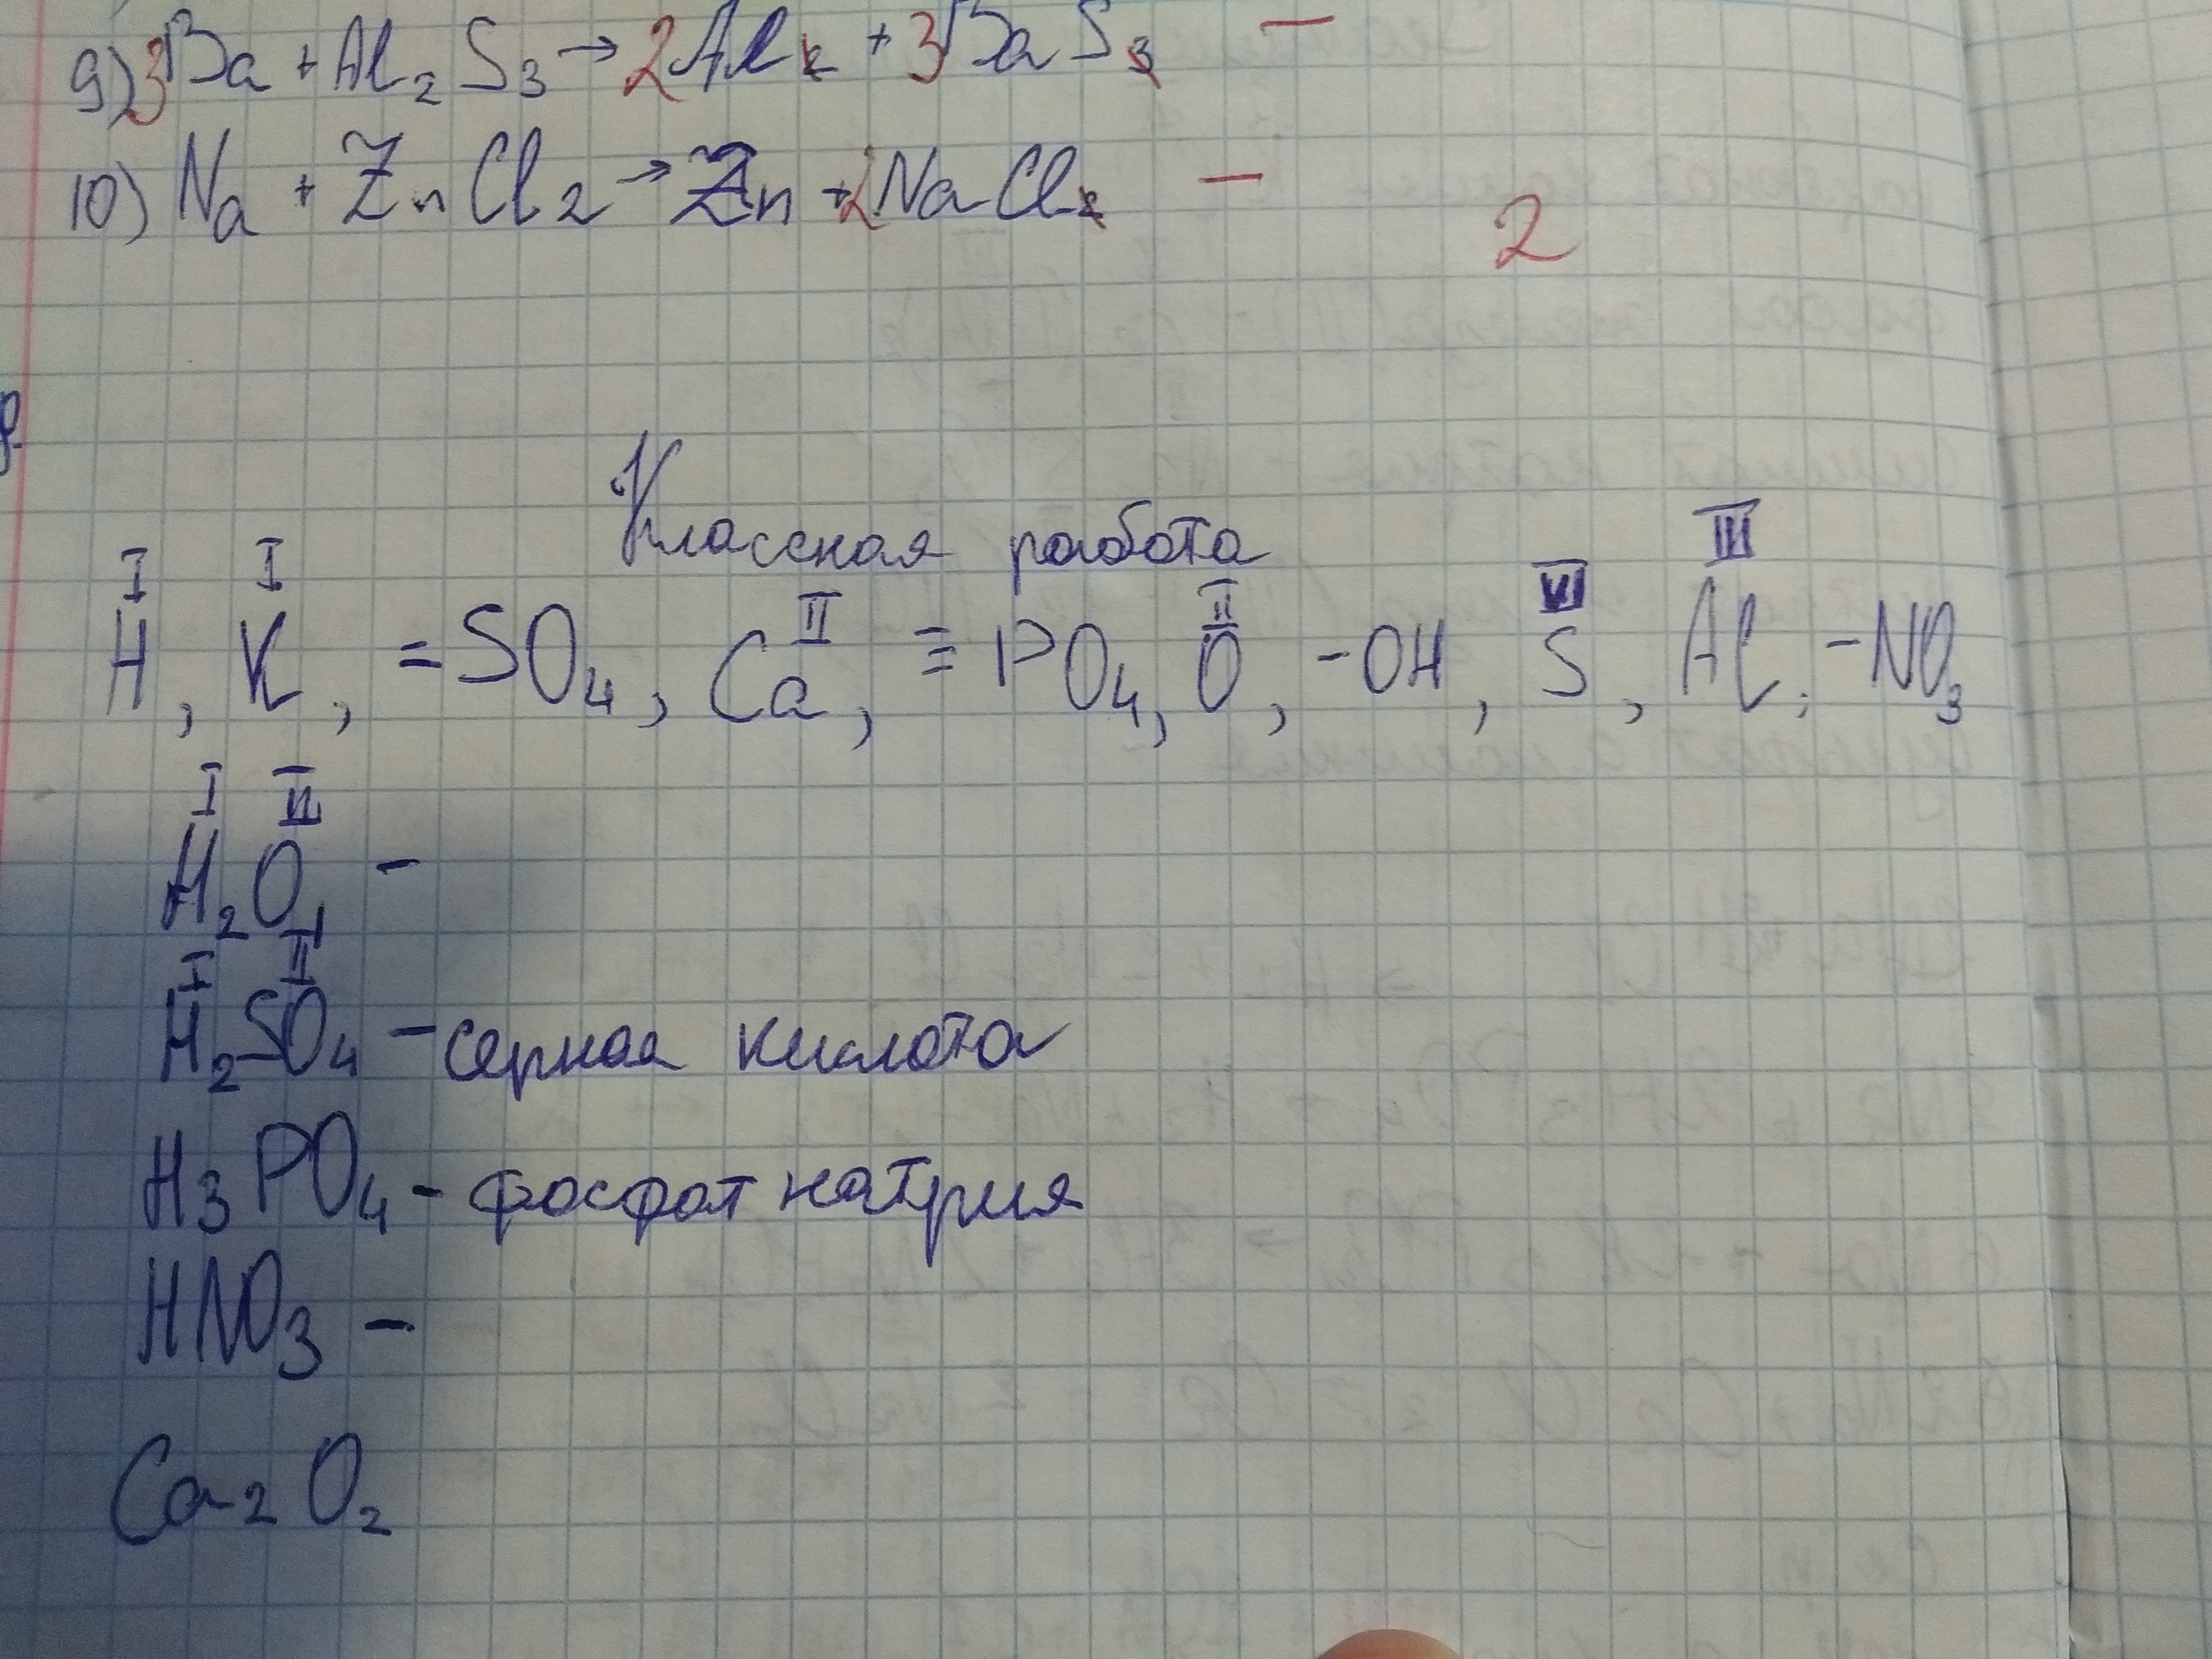 9) 3Ba + Al₂S₃ → 2Al₂ + 3BaS₃ —
10) Na + ZnCl₂ → Zn + 2NaCl₂ —
2
Классная работа
I I II II VI III
H, K, =SO₄, Ca, ≡PO₄, O, -OH, S, Al, -NO₃
I II
H₂O, -
I II
H₂SO₄ - серная кислота
H₃PO₄ - фосфат натрия
HNO₃ -
Ca₂O₂